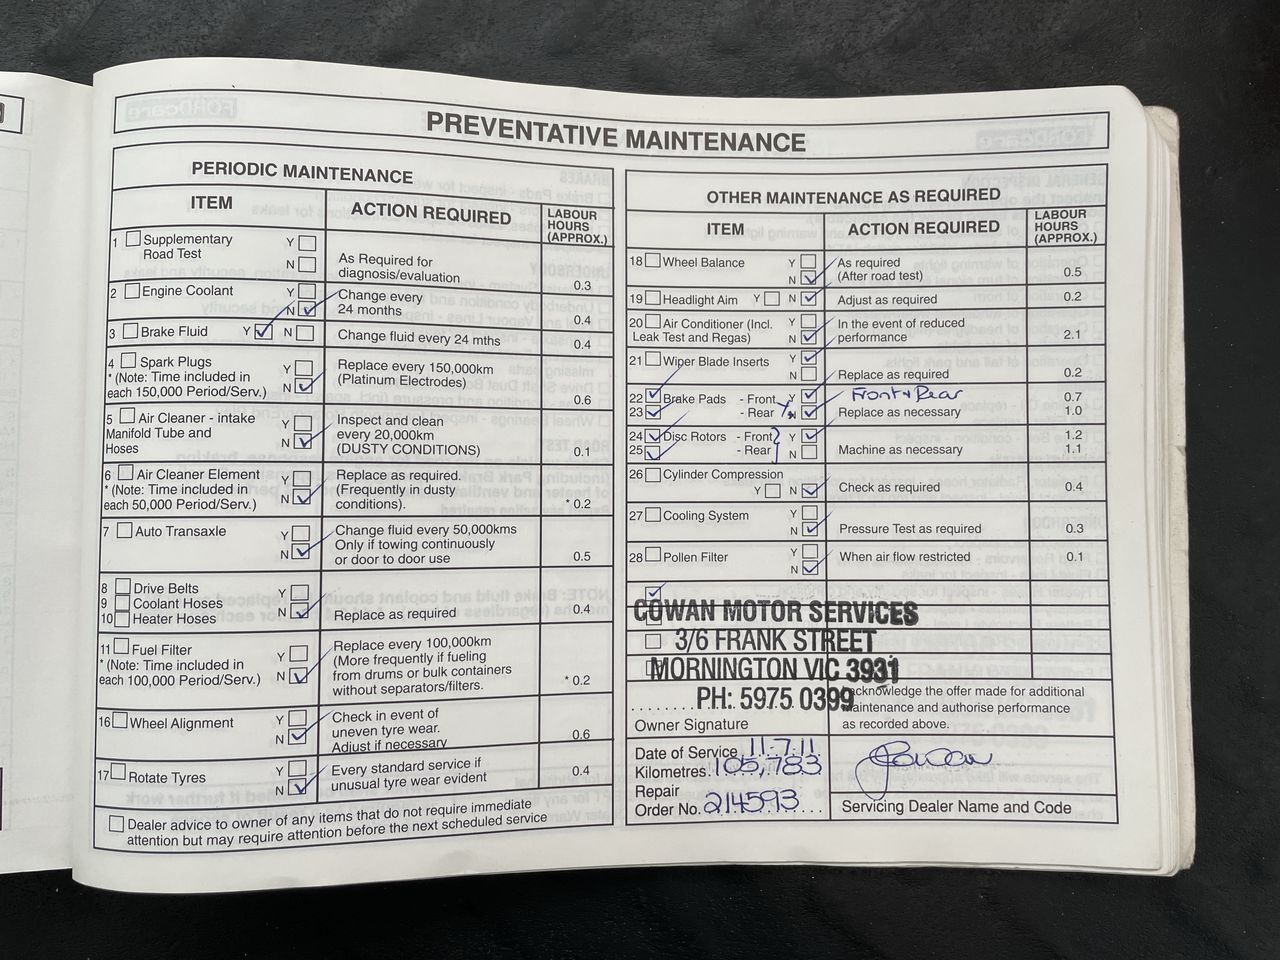 PREVENTATIVE MAINTENANCE
PERIODIC MAINTENANCE
ITEM
ACTION REQUIRED
LABOUR
HOURS
(APPROX.)
1 Supplementary Y
Road Test N
As Required for
diagnosis/evaluation
0.3
2 Engine Coolant Y
N
Change every
24 months
0.4
3 Brake Fluid Y N
Change fluid every 24 mths
0.4
4 Spark Plugs Y
* (Note: Time included in
each 150,000 Period/Serv.) N
Replace every 150,000km
(Platinum Electrodes)
0.6
5 Air Cleaner - intake
Manifold Tube and Y
Hoses N
Inspect and clean
every 20,000km
(DUSTY CONDITIONS)
0.1
6 Air Cleaner Element Y
* (Note: Time included in
each 50,000 Period/Serv.) N
Replace as required.
(Frequently in dusty
conditions).
* 0.2
7 Auto Transaxle Y
N
Change fluid every 50,000kms
Only if towing continuously
or door to door use
0.5
8 Drive Belts
9 Coolant Hoses Y
10 Heater Hoses N
Replace as required
0.4
11 Fuel Filter Y
* (Note: Time included in
each 100,000 Period/Serv.) N
Replace every 100,000km
(More frequently if fueling
from drums or bulk containers
without separators/filters.
* 0.2
16 Wheel Alignment Y
N
Check in event of
uneven tyre wear.
Adjust if necessary
0.6
17 Rotate Tyres Y
N
Every standard service if
unusual tyre wear evident
0.4
Dealer advice to owner of any items that do not require immediate
attention but may require attention before the next scheduled service
OTHER MAINTENANCE AS REQUIRED
ITEM
ACTION REQUIRED
LABOUR
HOURS
(APPROX.)
18 Wheel Balance Y
N
As required
(After road test)
0.5
19 Headlight Aim Y N
Adjust as required
0.2
20 Air Conditioner (Incl. Y
Leak Test and Regas) N
In the event of reduced
performance
2.1
21 Wiper Blade Inserts Y
N
Replace as required
0.2
22 Brake Pads - Front Y
23 - Rear N
Front + Rear
Replace as necessary
0.7
1.0
24 Disc Rotors - Front Y
25 - Rear N
Machine as necessary
1.2
1.1
26 Cylinder Compression
Y N
Check as required
0.4
27 Cooling System Y
N
Pressure Test as required
0.3
28 Pollen Filter Y
N
When air flow restricted
0.1
COWAN MOTOR SERVICES
3/6 FRANK STREET
MORNINGTON VIC 3931
PH: 5975 0399
Owner Signature
acknowledge the offer made for additional
maintenance and authorise performance
as recorded above.
Date of Service 11.7.11
Kilometres. 105,783
Repair
Order No. 214593
Servicing Dealer Name and Code